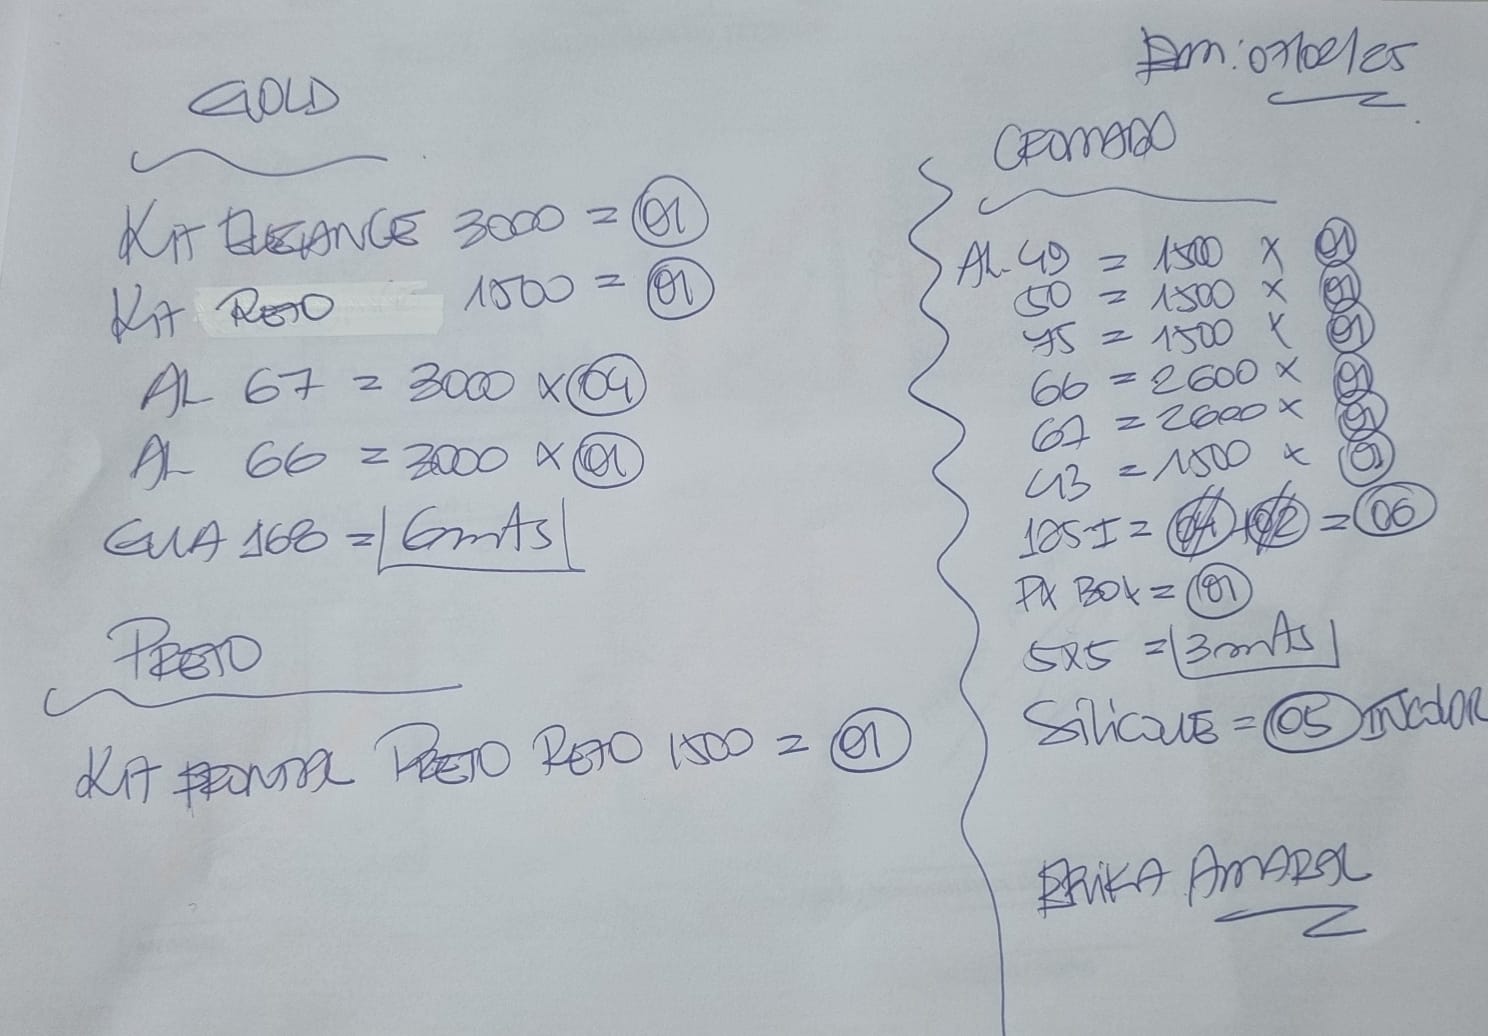 Em: 07/02/25
GOLD
KIT ELEGANCE 3000 = 01
KIT RETO 1500 = 01
AL 67 = 3000 x 04
AL 66 = 3000 x 01
GUA 168 = 6mts
PRETO
KIT FRONTAL PRETO RETO 1500 = 01
CROMADO
AL. 49 = 1500 x 01
50 = 1500 x
75 = 1500 x 01
66 = 2600 x
67 = 2600 x
43 = 1500 x
185-I = 04 + 02 = 06
PX BOX = 01
5x5 = 3mts
SiliCONE = 05 INCOLOR
ERIKA AMARAL